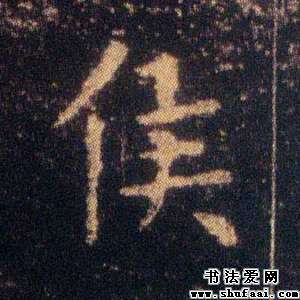 侯
书法爱网
www.shufaai.com